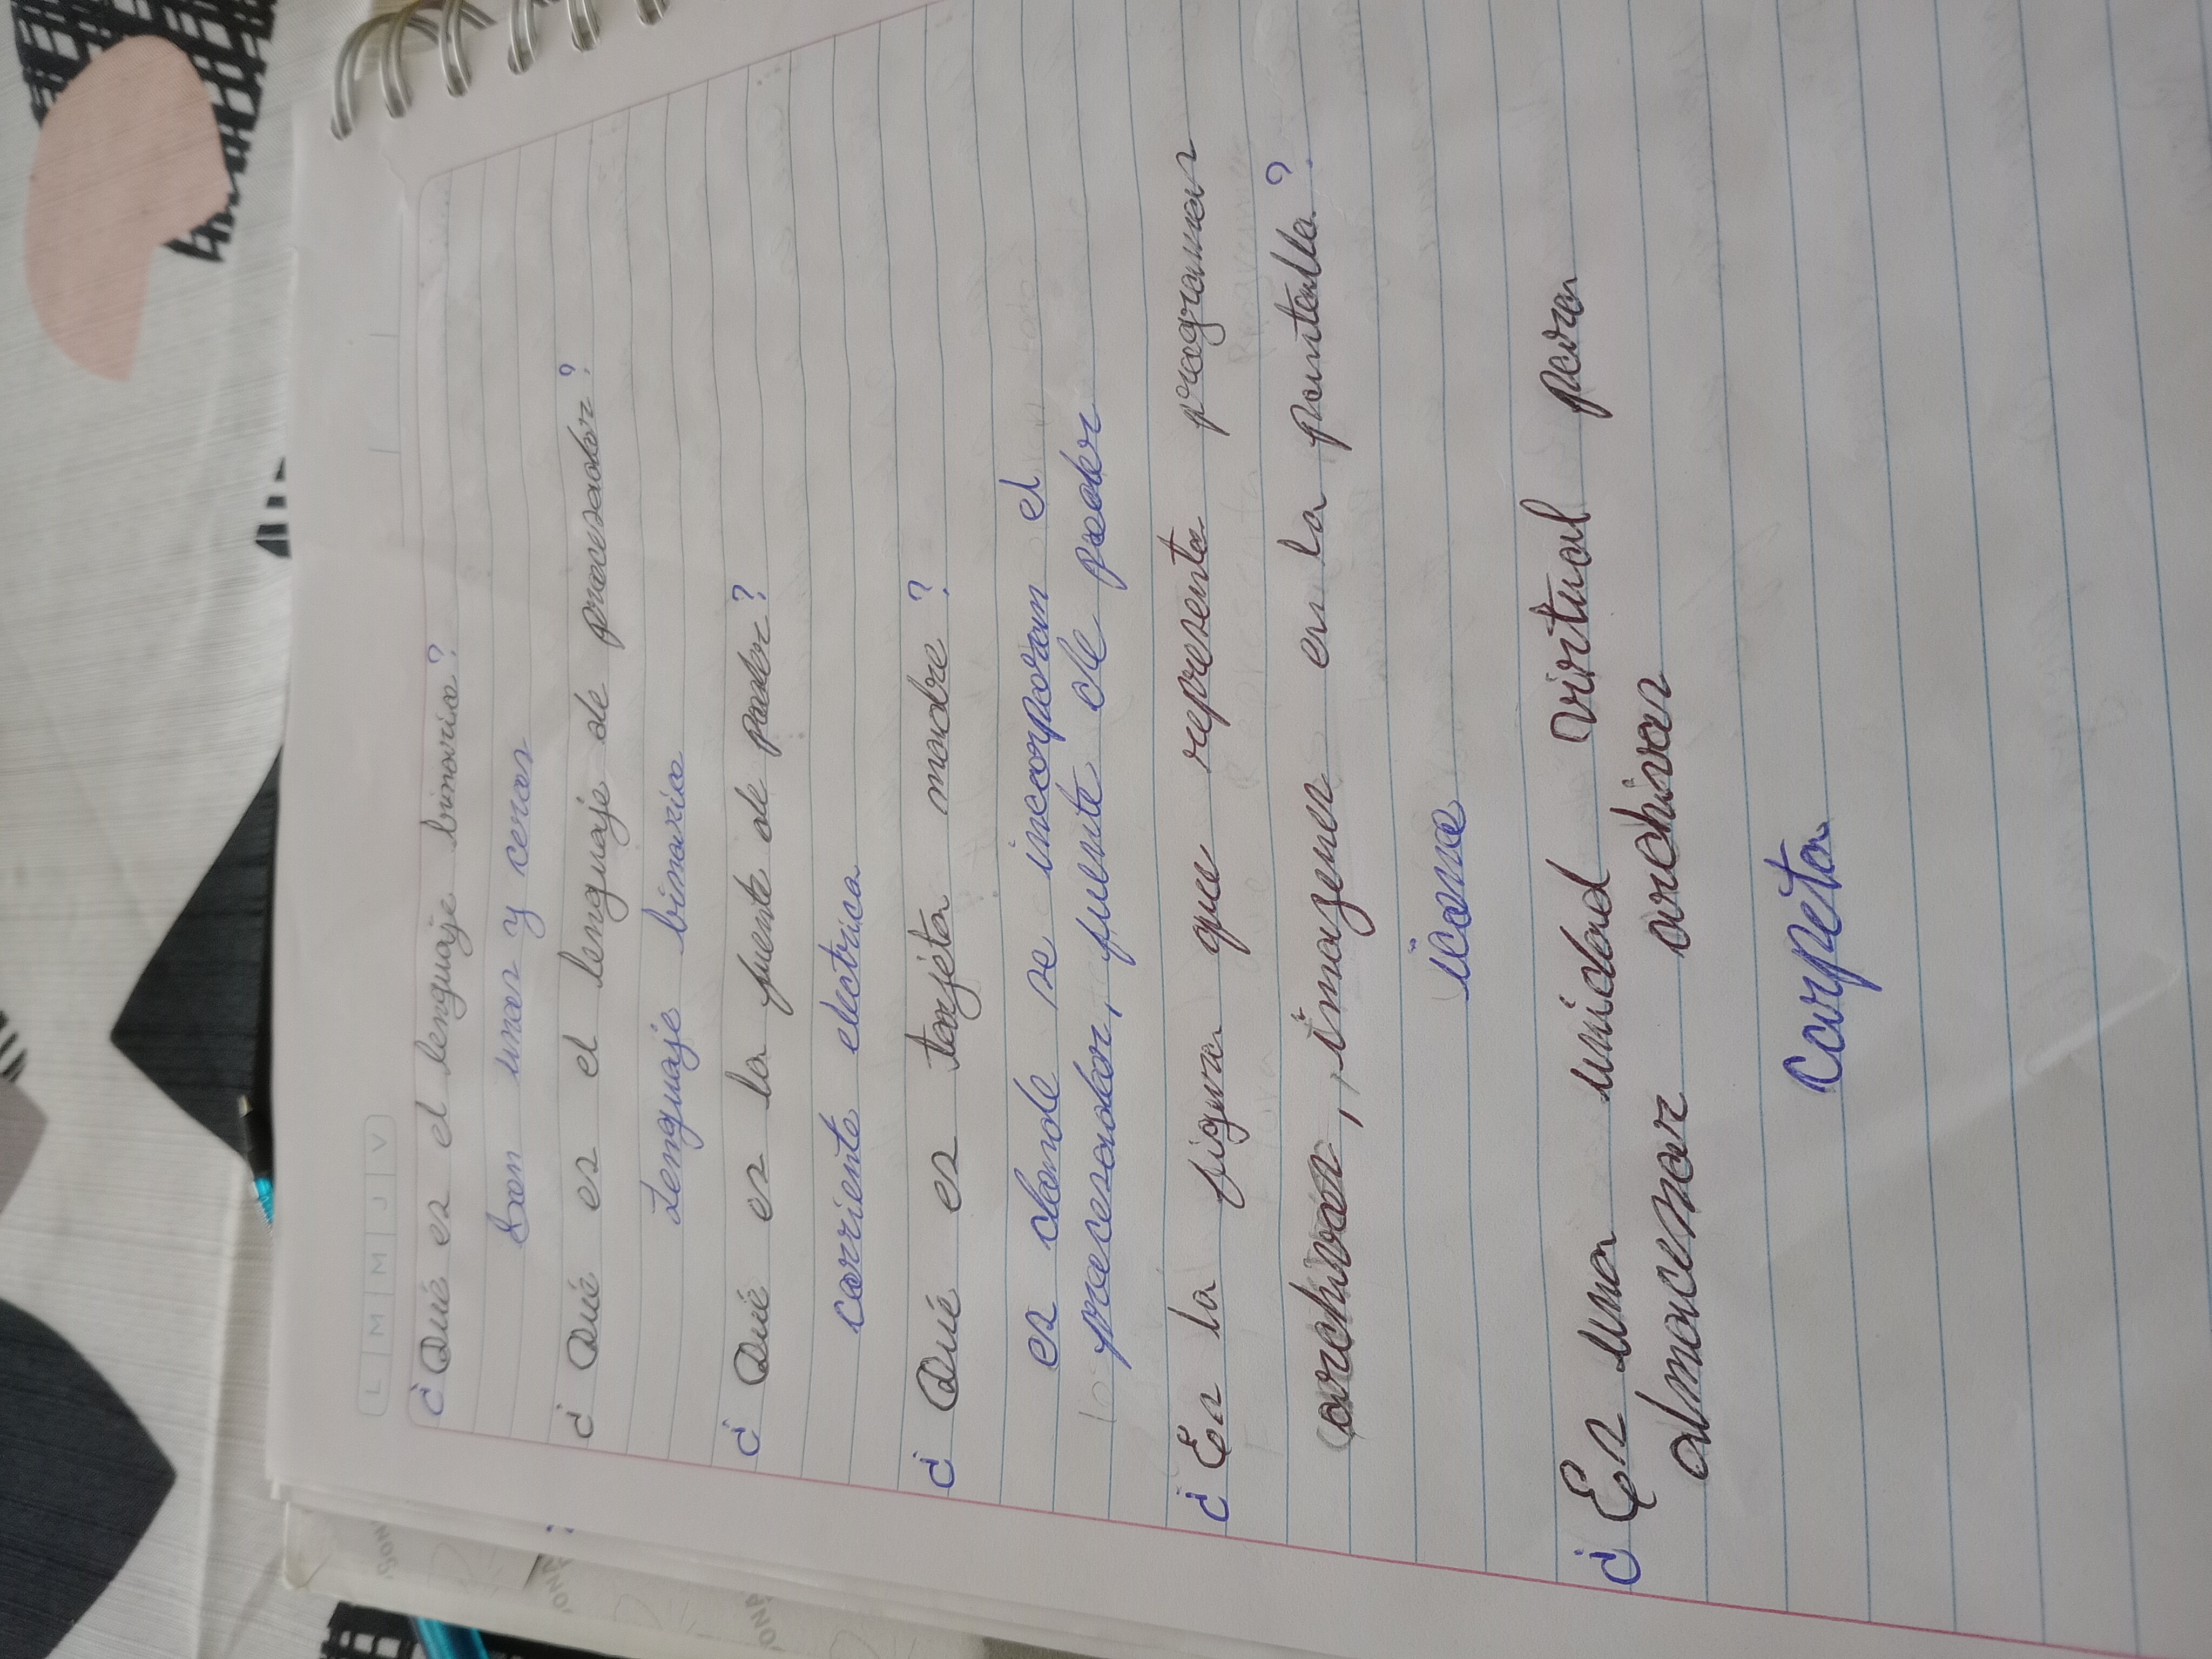 L M M J V
¿Qué es el lenguaje binario?
Son unos y ceros
¿Qué es el lenguaje de procesador?
Lenguaje binario
¿Qué es la fuente de poder?
corriente electrica
¿Qué es tarjéta madre?
es donde se incorporan el
procesador, fuente de poder
¿Es la figura que representa programas
archivos, imagenes en la pantalla?
icono
¿Es una unidad virtual para
almacenar archivos
carpeta